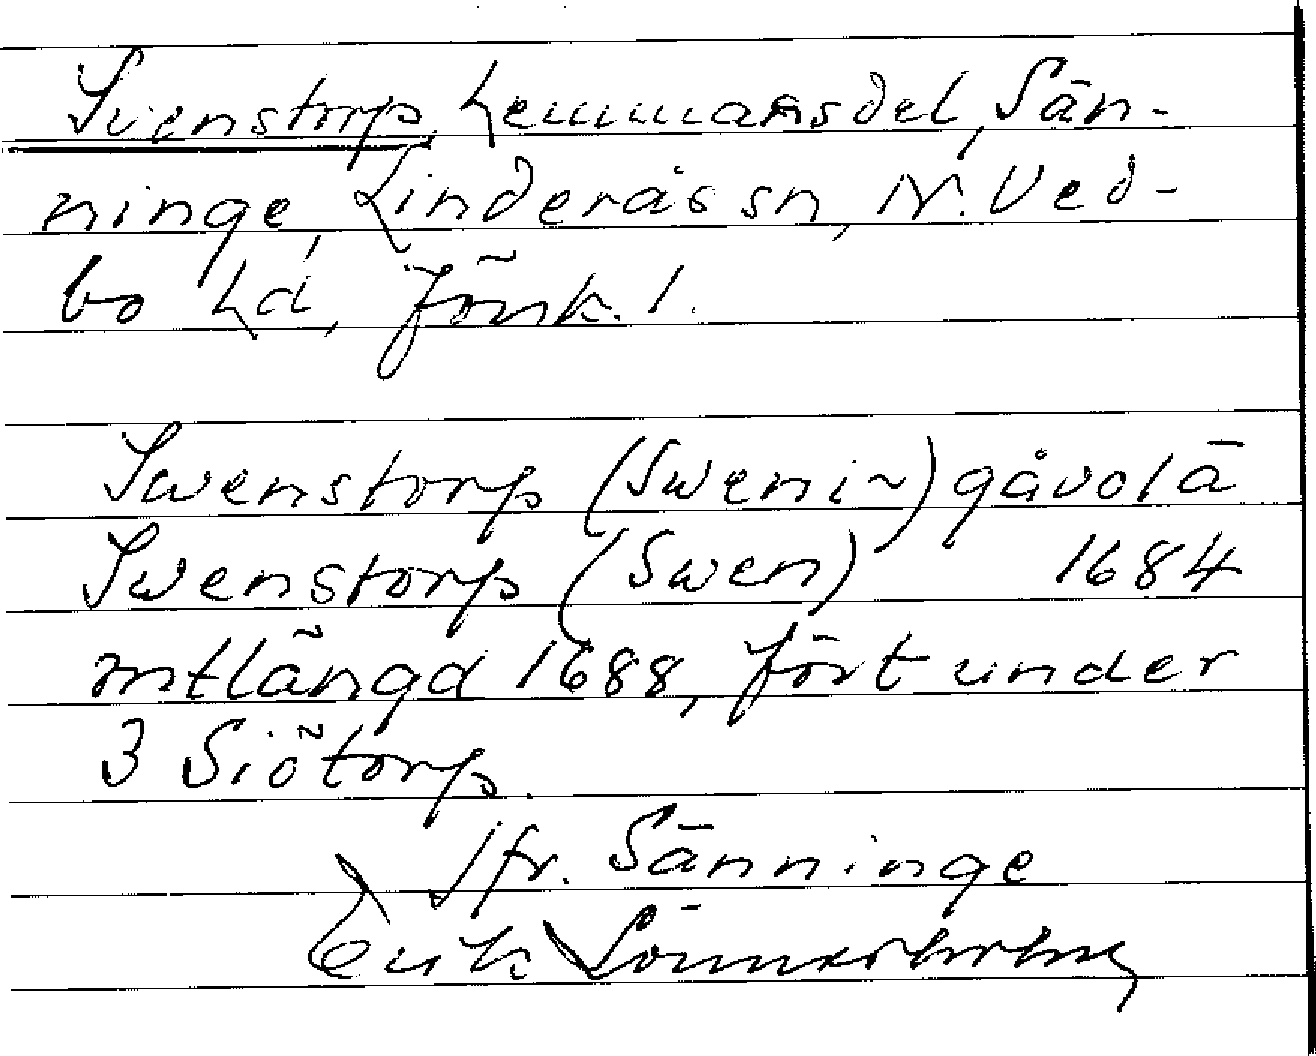 Svenstorp, hemmansdel, Sän-
ninge, Linderås sn, N. Ved-
bo hd, försk. 1.
Swenstorp (Sweni~) gåvolä
Swenstorp (Swen) 1684
mtlängd 1688, fört under
3 Siötorp.
Jfr. Sänninge
Erik Lönnerholm